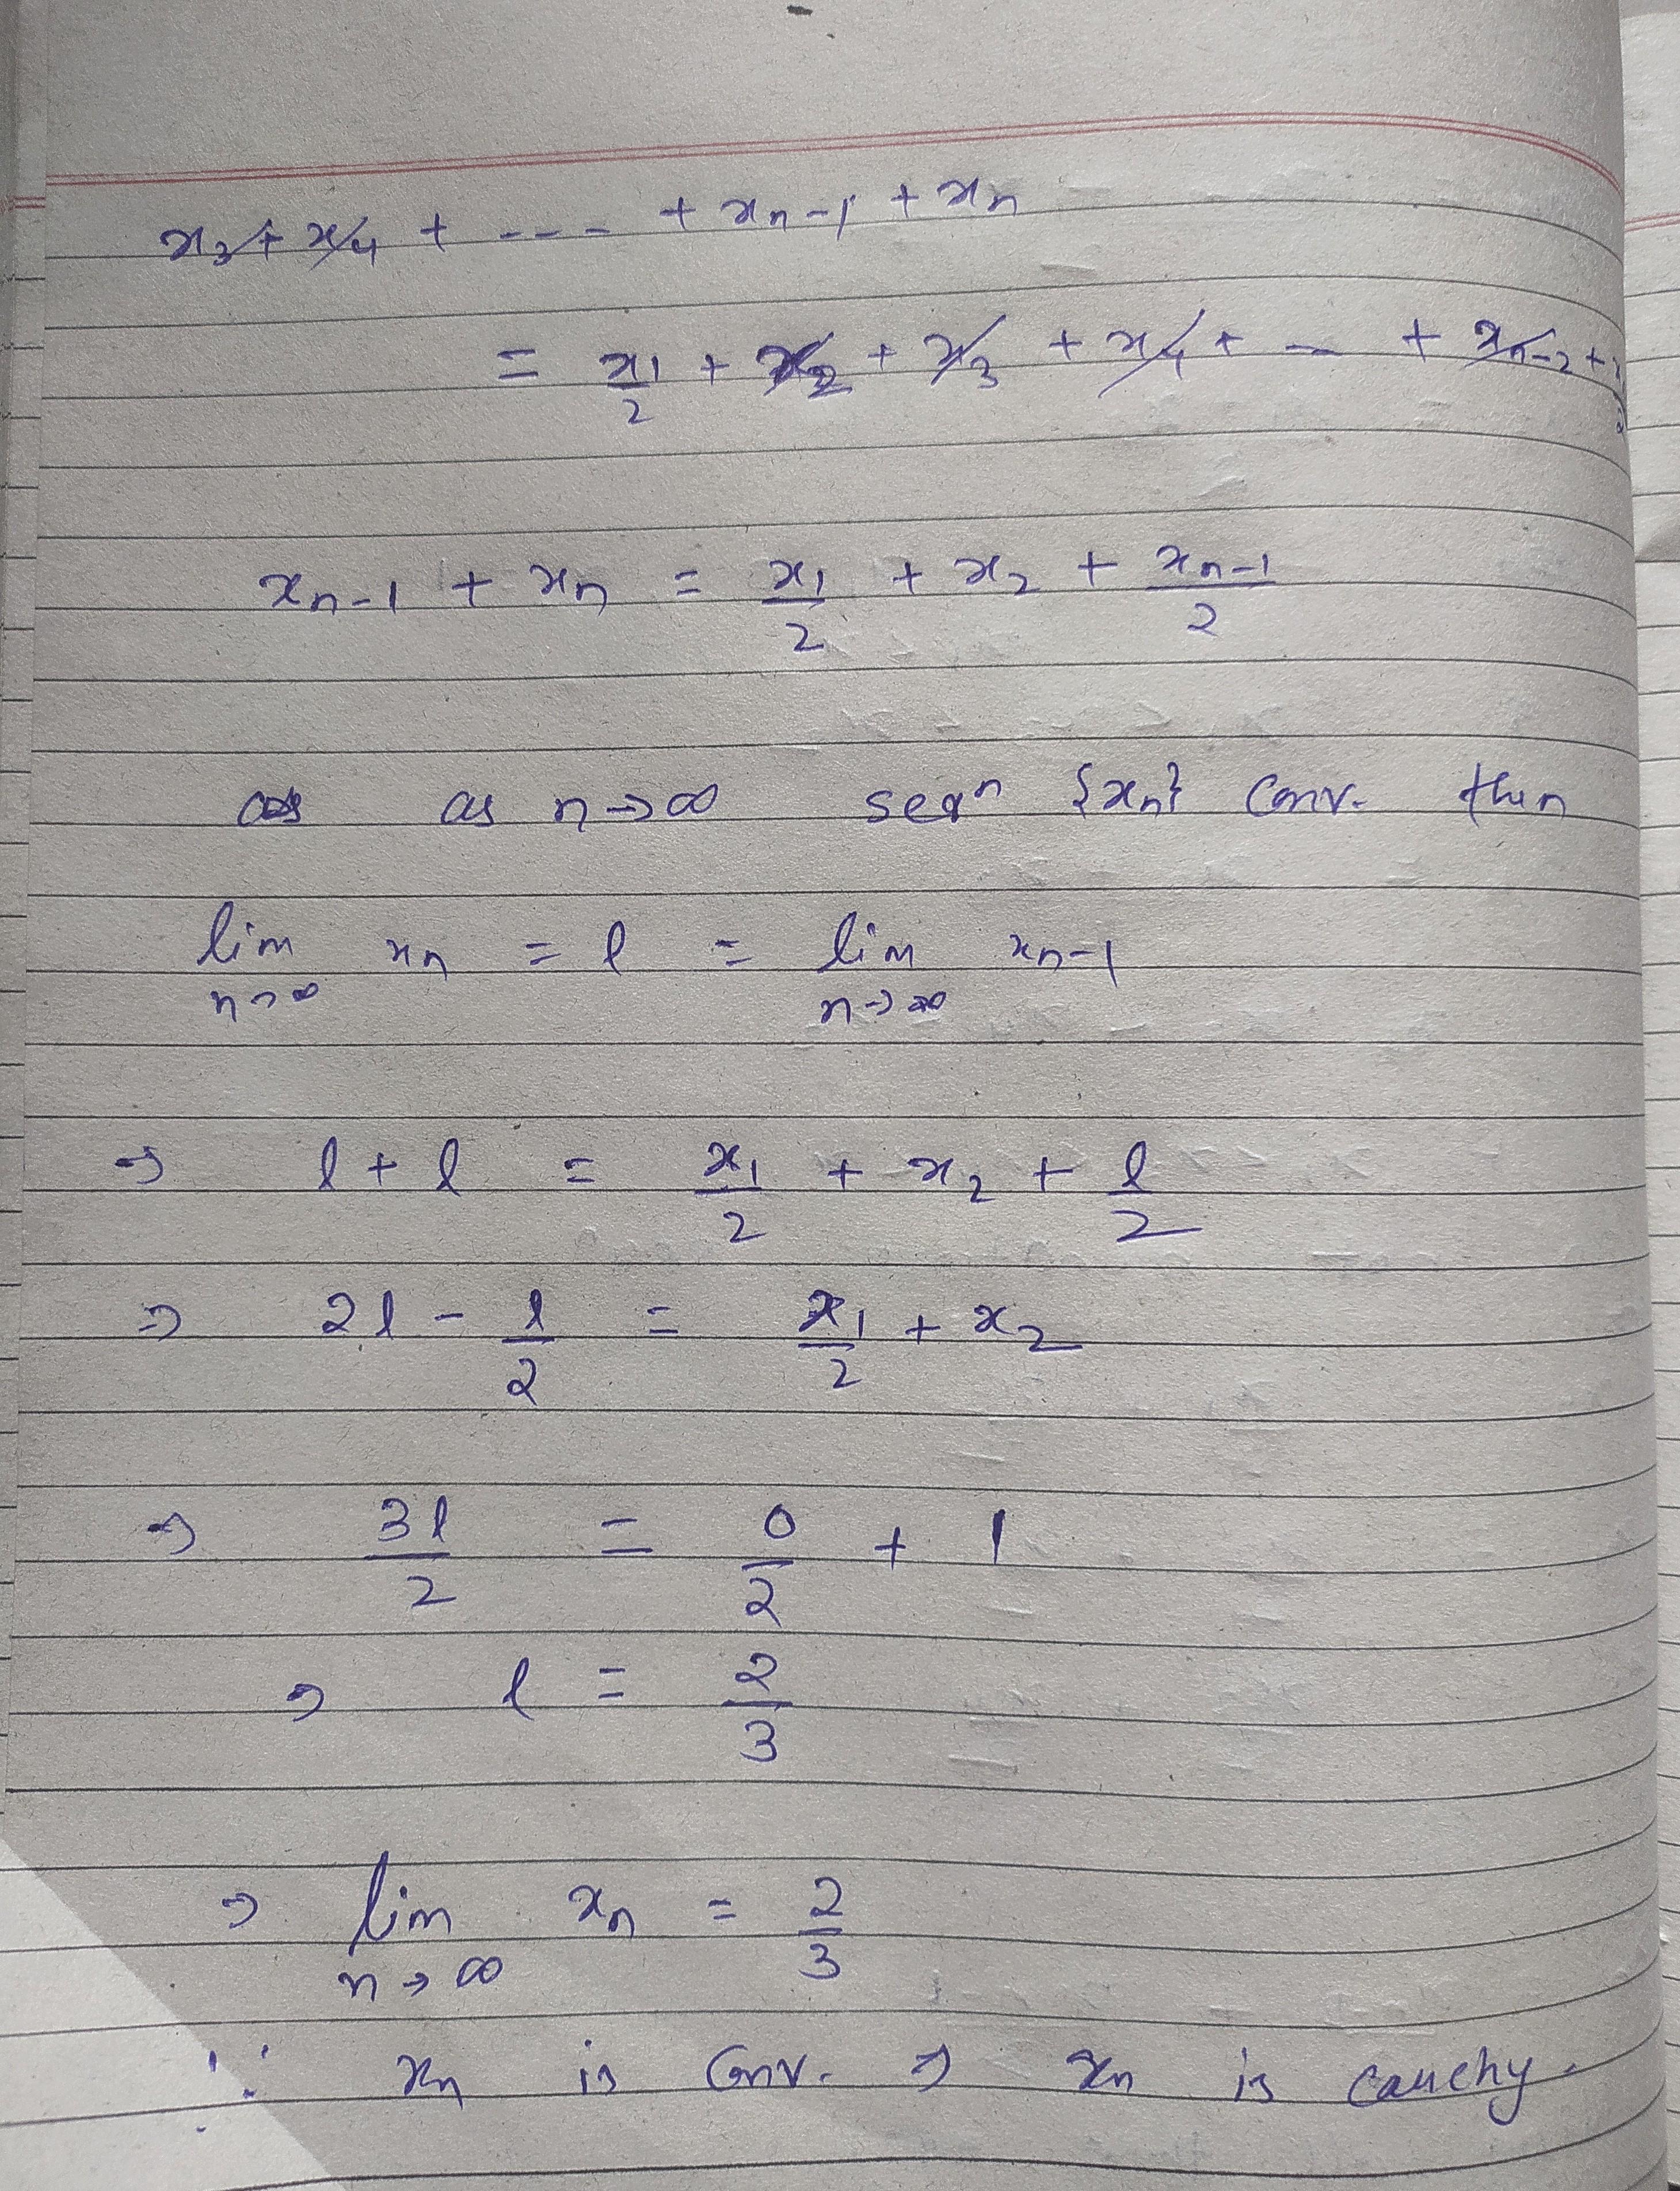 x₃ + x₄ + --- + xₙ₋₁ + xₙ
= x₁/2 + x₂ + x₃ + x₄ + -- + xₙ₋₂ +
xₙ₋₁ + xₙ = x₁/2 + x₂ + xₙ₋₁/2
as n→∞ seqⁿ {xₙ} Conv. then
lim n→∞ xₙ = l = lim n→∞ xₙ₋₁
⇒ l + l = x₁/2 + x₂ + l/2
⇒ 2l - l/2 = x₁/2 + x₂
⇒ 3l/2 = 0/2 + 1
⇒ l = 2/3
⇒ lim n→∞ xₙ = 2/3
∵ xₙ is Conv. ⇒ xₙ is cauchy.